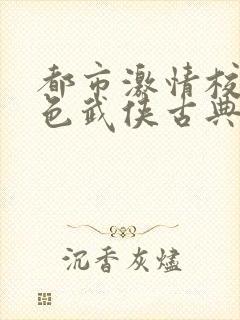 都市激情校
色武侠古典
沉香灰燼